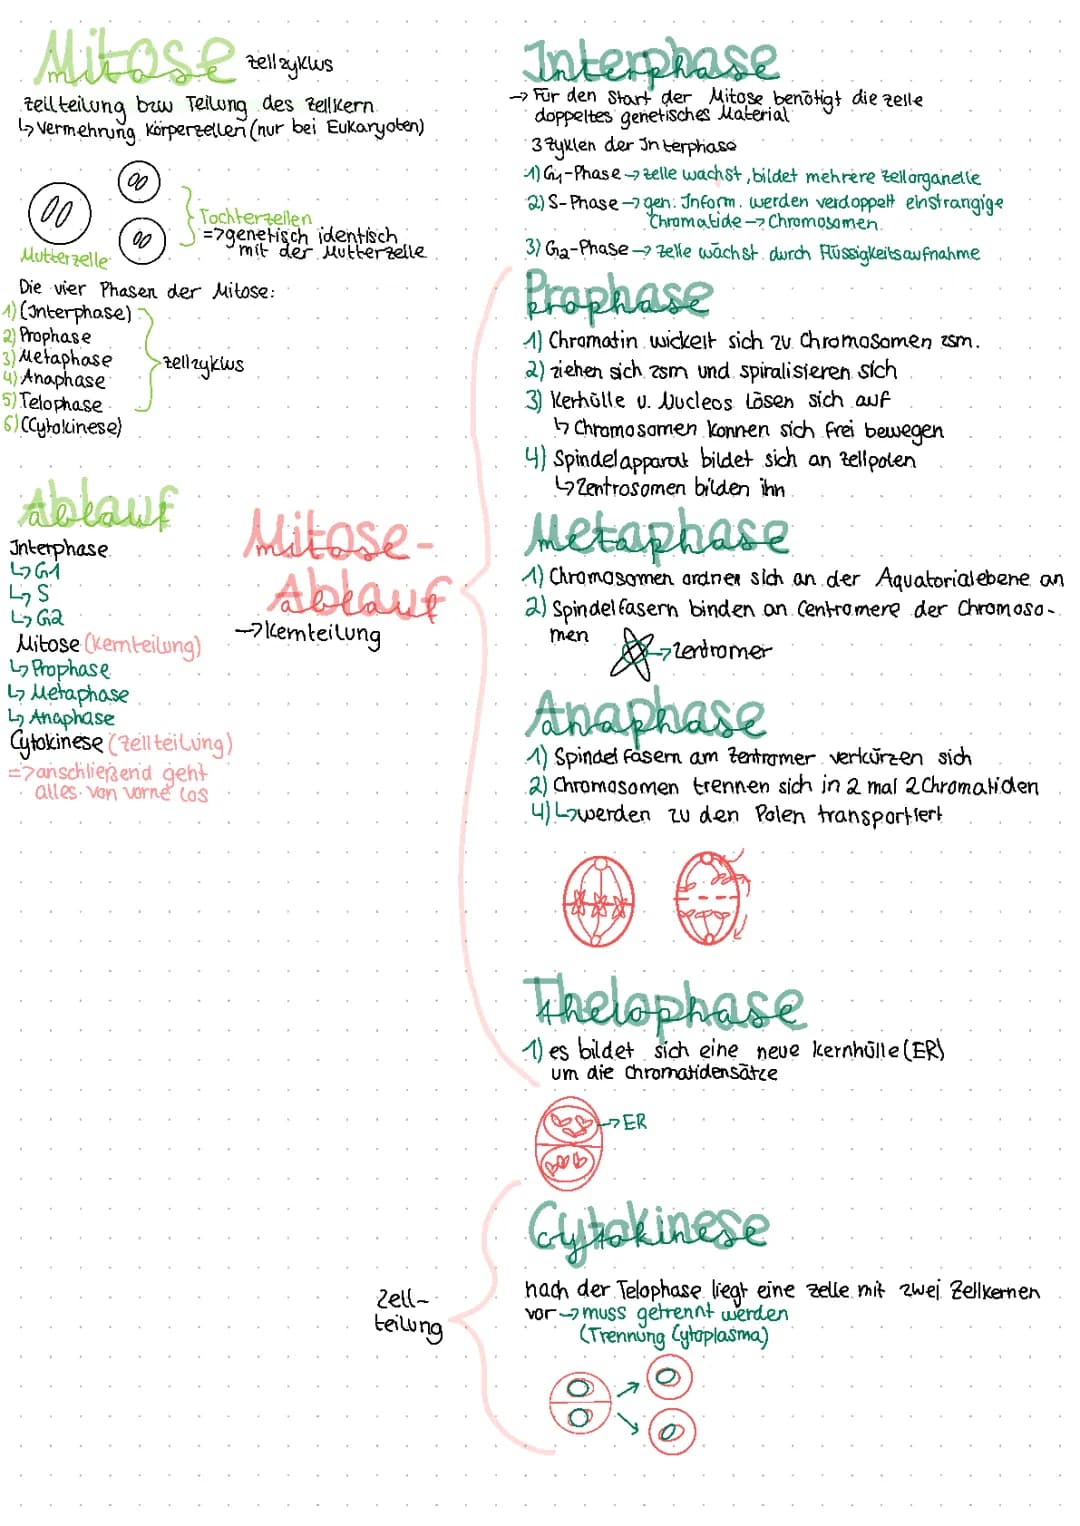 Mitose Zellzyklus
mitose
Zellteilung bzw Teilung des Zellkern
↳ Vermehrung Körperzellen (nur bei Eukaryoten)
Tochterzellen
=> genetisch identisch
mit der Mutterzelle
Mutterzelle
Die vier Phasen der Mitose:
1) (Interphase)
2) Prophase
3) Metaphase
4) Anaphase
5) Telophase
6) (Cytokinese)
Zellzyklus
Ablauf
ablauf
Interphase
↳ G1
↳ S
↳ G2
Mitose (Kernteilung)
↳ Prophase
↳ Metaphase
↳ Anaphase
Cytokinese (Zellteilung)
=> anschließend geht
alles von vorne los
Mitose-
mitose
Ablauf
ablauf
→ Kernteilung
Interphase
interphase
→ Für den Start der Mitose benötigt die Zelle
doppeltes genetisches Material
3 Zyklen der Interphase
1) G1-Phase → Zelle wachst, bildet mehrere Zellorganelle
2) S-Phase → gen. Inform. werden verdoppelt einstrangige
Chromatide → Chromosomen
3) G2-Phase → Zelle wächst durch Flüssigkeitsaufnahme
Prophase
prophase
1) Chromatin wickelt sich zu Chromosomen zsm.
2) ziehen sich zsm und spiralisieren sich
3) Kerhülle u. Nucleos lösen sich auf
↳ Chromosomen konnen sich frei bewegen
4) Spindelapparat bildet sich an Zellpolen
↳ Zentrosomen bilden ihn
Metaphase
metaphase
1) Chromosomen ordnen sich an der Äquatorialebene an
2) Spindelfasern binden an Centromere der Chromoso-
men
→ Zentromer
Anaphase
anaphase
1) Spindel fasern am Zentromer verkürzen sich
2) Chromosomen trennen sich in 2 mal 2 Chromatiden
4) ↳ werden zu den Polen transportiert
Thelophase
thelophase
1) es bildet sich eine neue Kernhülle (ER)
um die Chromatidensätze
→ ER
Cytokinese
cytokinese
nach der Telophase liegt eine Zelle mit zwei Zellkernen
vor → muss getrennt werden
(Trennung Cytoplasma)
Zell-
teilung